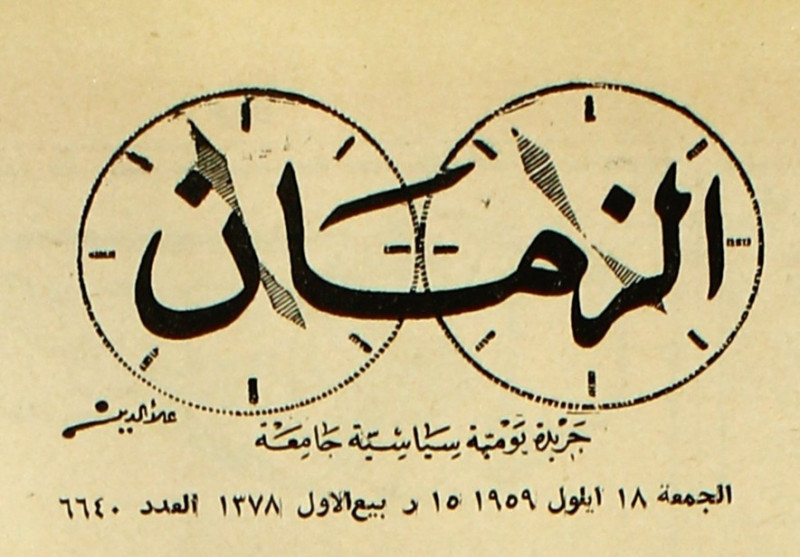 الزمان
علاءالدين
جَريْدة يَوْميّة سِيَاسْيّة جَامِعَة
الجمعة ١٨ ايلول ١٩٥٩ ١٥ ر بيع الاول ١٣٧٨ العدد ٦٦٤٠